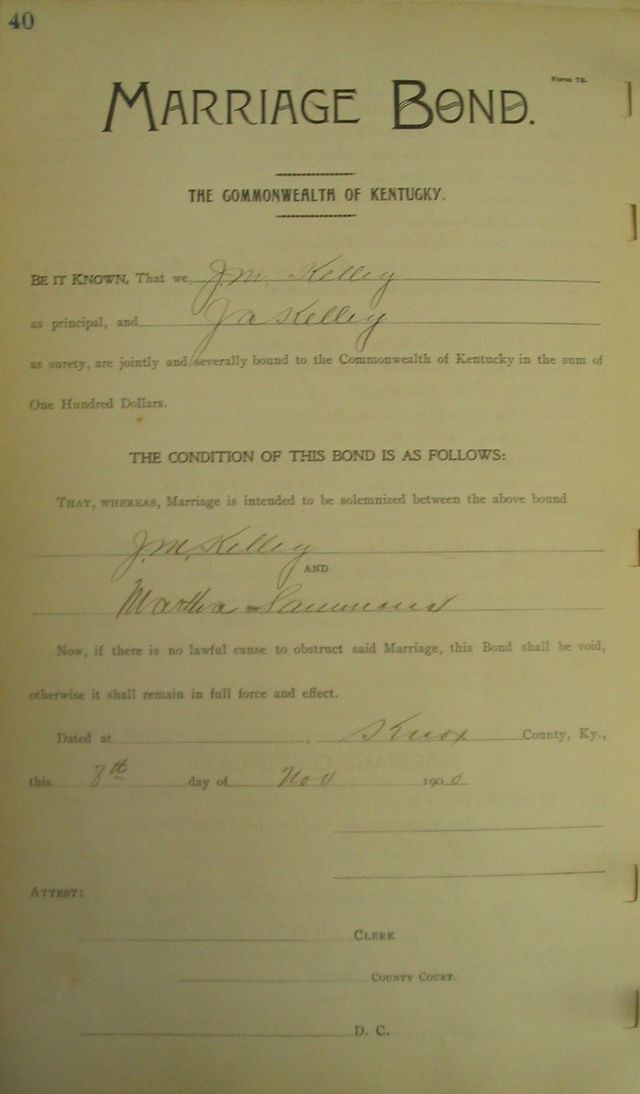 40
Form 75.
MARRIAGE BOND.
THE COMMONWEALTH OF KENTUCKY.
BE IT KNOWN, That we, J.M. Kelley
as principal, and J a Kelley
as surety, are jointly and severally bound to the Commonwealth of Kentucky in the sum of
One Hundred Dollars.
THE CONDITION OF THIS BOND IS AS FOLLOWS:
THAT, WHEREAS, Marriage is intended to be solemnized between the above bound
J.M. Kelley
AND
Martha Sammons
Now, if there is no lawful cause to obstruct said Marriage, this Bond shall be void,
otherwise it shall remain in full force and effect.
Dated at Knox County, Ky.,
this 8th day of Nov 1900
ATTEST:
CLERK
COUNTY COURT.
D. C.